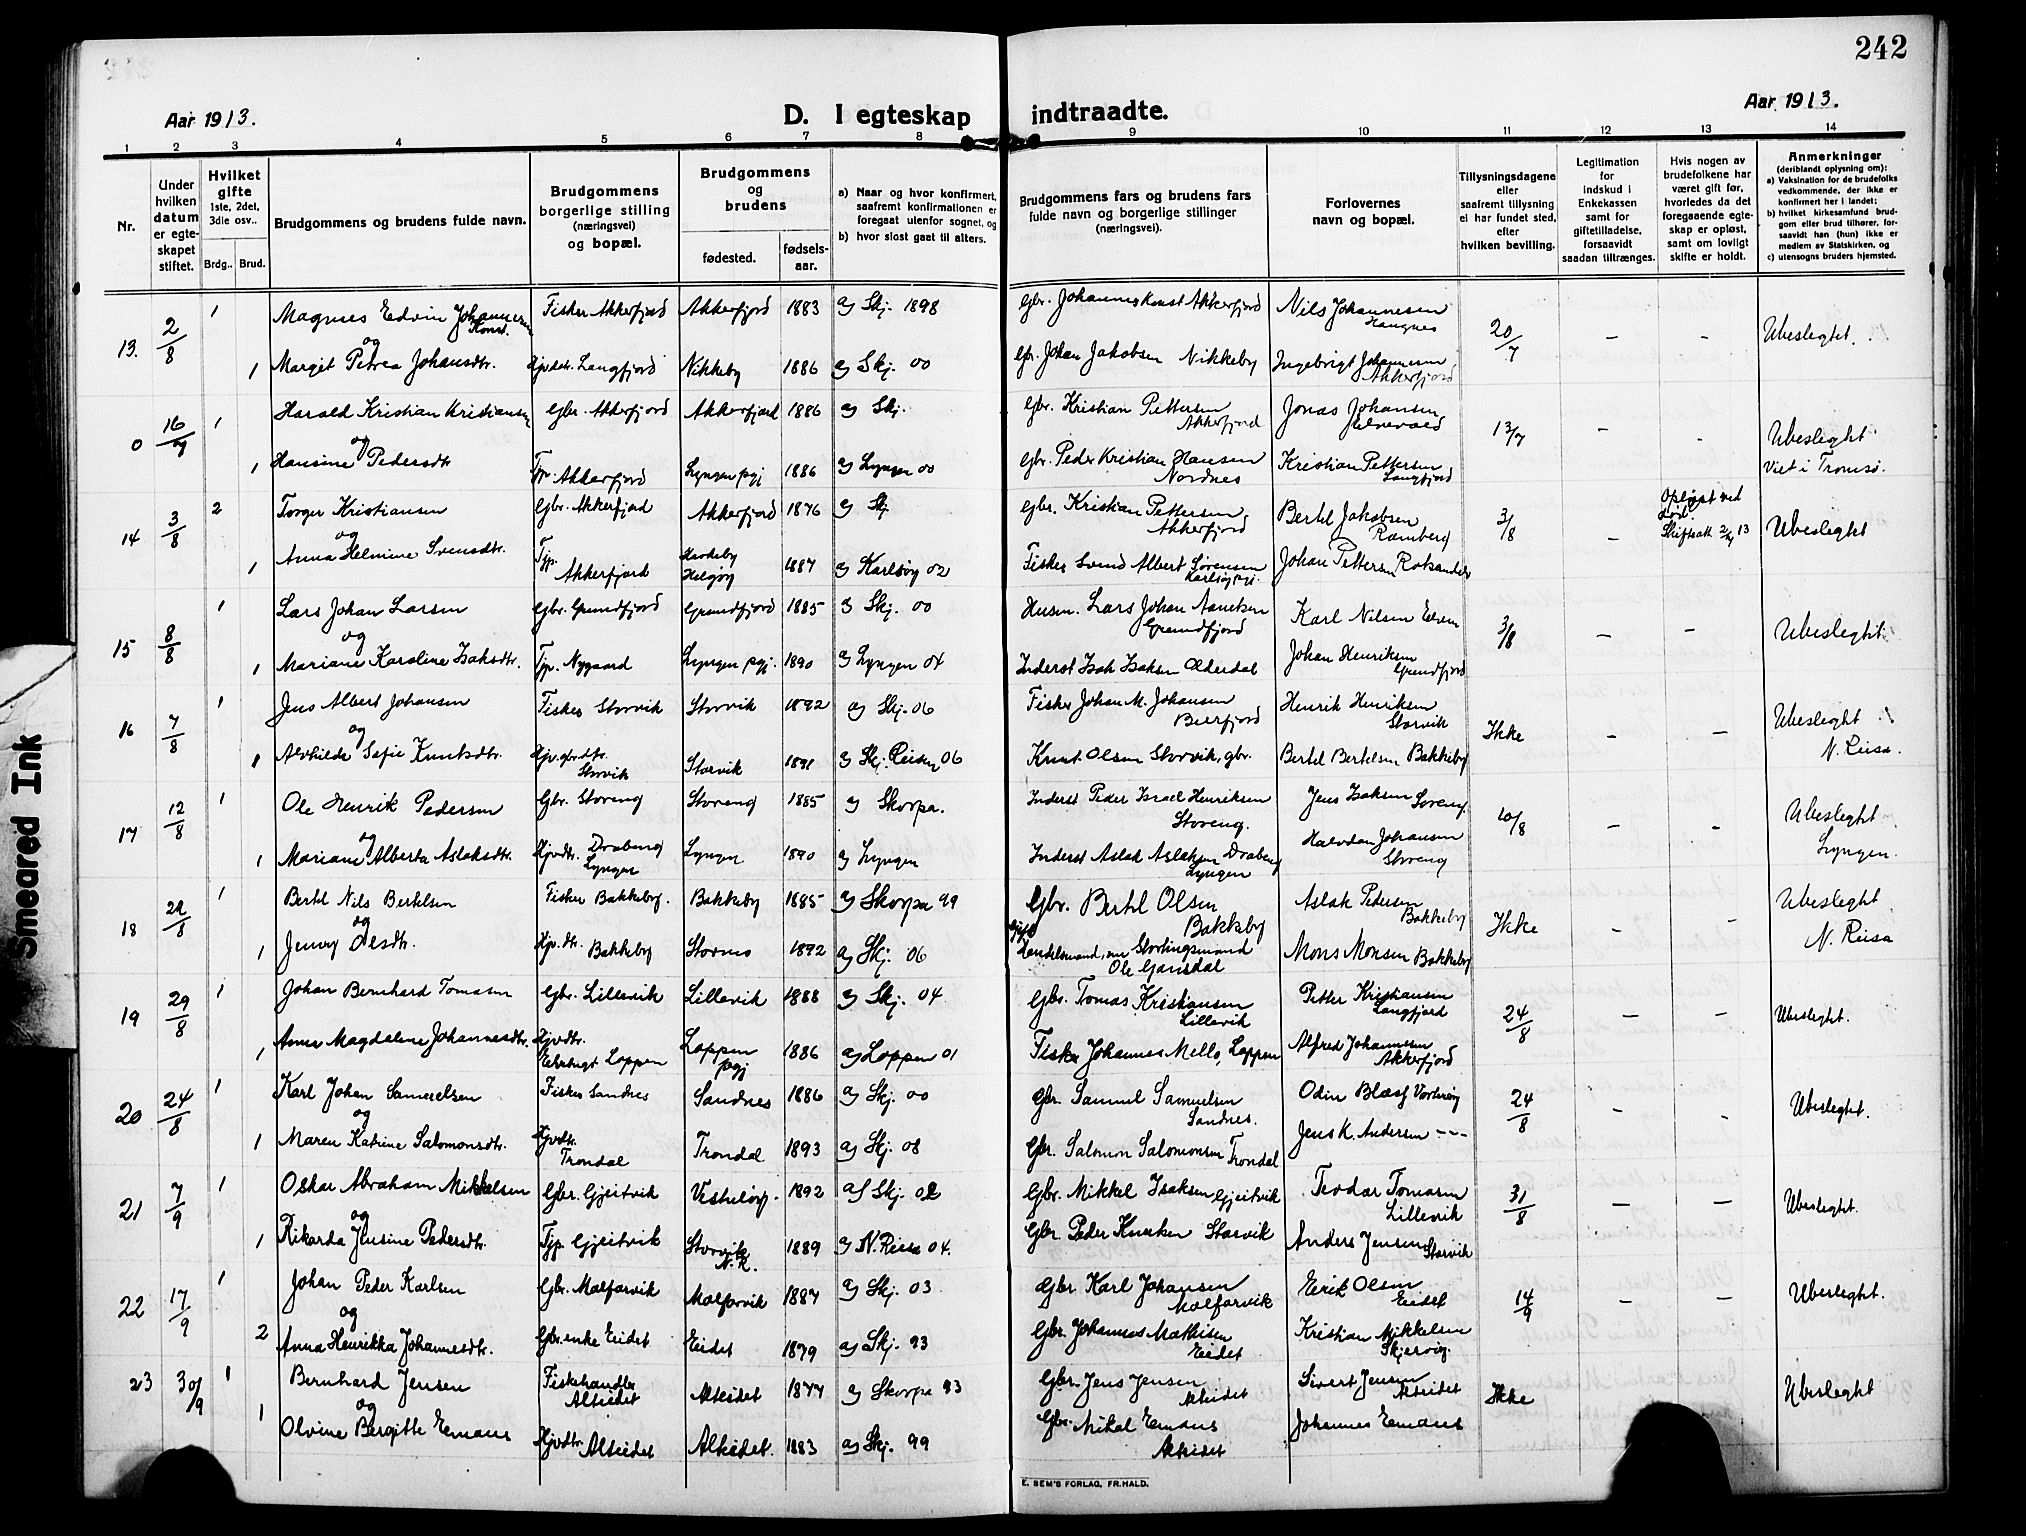 242
Aar 1913.
D. I egteskap indtraadte.
Aar 1913.
1 2 3 4 5 6 7 8 9 10 11 12 13 14
Nr.
Under hvilken datum er egteskapet stiftet.
Hvilket gifte 1ste, 2det, 3die osv..
Brdg.. Brud.
Brudgommens og brudens fulde navn.
Brudgommens borgerlige stilling (næringsvei) og bopæl.
Brudgommens og brudens
fødested. fødsels-aar.
a) Naar og hvor konfirmert, saafremt konfirmationen er foregaat utenfor sognet, og
b) hvor sidst gaat til alters.
Brudgommens fars og brudens fars fulde navn og borgerlige stillinger (næringsvei).
Forlovernes navn og bopæl.
Tillysningsdagene eller saafremt tillysning ei har fundet sted, efter hvilken bevilling.
Legitimation for indskud i Enkekassen samt for giftetilladelse, forsaavidt saadan tiltrænges.
Hvis nogen av brudefolkene har været gift før, hvorledes da det foregaaende egteskap er opløst, samt om lovligt skifte er holdt.
Anmerkninger (deriblandt oplysning om): a) Vaksination for de brudefolks vedkommende, der ikke er konfirmert her i landet; b) hvilket kirkesamfund brudgom eller brud tilhører, forsaavidt han (hun) ikke er medlem av Statskirken, og c) utensogns bruders hjemsted.
13. 2/8 1 Magnus Edvin Johannesen Konst. Fisker Akkerfjord Akkerfjord 1883 a) Skj. 1898 Gbr. Johannes Konst Akkerfjord Nils Johannesen Hangnes 20/7 – – Ubeslegtet.
og
1 Margit Petrea Johansdtr. Hjv.dtr. Langfjord Nikkeby 1886 a) Skj. 00 Gbr. Johan Jakobsen Nikkeby Ingebrigt Johannesen Akkerfjord
0 16/7 1 Harald Kristian Kristiansen Gbr. Akkerfjord Akkerfjord 1886 a) Skj. Gbr. Kristian Pettersen Akkerfjord Jonas Johansen Elvevold 13/7 – – Ubeslegtet
og
1 Hansine Pedersdtr Tjp. Akkerfjord Lyngen pgj 1886 a) Lyngen 00 Gbr. Peder Kristian Hansen Nordnes Kristian Pettersen Langfjord Viet i Tromsø.
14 3/8 2 Torger Kristiansen Gbr. Akkerfjord Akkerfjord 1876 a) Skj Gbr. Kristian Pettersen Akkerfjord Bertel Jakobsen Ramberg 3/8 – Opløst ved død. Ubeslegtet
og
1 Anna Helmine Svensdtr. Tjp. Akkerfjord Helgøy 1887 a) Karlsøy 02 Fisker Svend Albert Sørensen Karlsøy pgj. Johan Pettersen Rotsundelv
15 8/8 1 Lars Johan Larsen Gbr. Grundfjord Grundfjord 1885 a) Skj. 00 Husm. Lars Johan Grundfjord Karl Nilsen 3/8 – – Ubeslegtet.
og
1 Mariane Karoline Isaksdtr. Tjp. Nygaard Lyngen pgj. 1890 a) Lyngen 04 Inderst Isak Isaksen Olderdal Johan Henriksen Grundfjord
16 7/8 1 Jens Albert Johansen Fisker Storvik Storvik 1892 a) Skj. 06 Fisker Johan M. Johansen Henrik Henriksen Storvik Ikke – – Ubeslegtet
og
1 Alvhilde Sofie Knutsdtr. Storvik Storvik 1891 a) Skj. Reisen 06 Knut Olsen Storvik, gbr. Bertel Bertelsen Bakkeby N. Reisa.
17 12/8 1 Ole Henrik Pedersen Gbr. Storeng Storeng 1885 a) Skorpa. Inderst Peder Israel Henriksen Storeng. Jens Isaksen Soreng. 10/8 – – Ubeslegtet
og
1 Mariane Alberta Aslaksdtr. Hjvdtr. Drabeng Lyngen Lyngen 1890 a) Lyngen Inderst Aslak Aslaksen Drabeng Lyngen Halvdan Johansen Storeng Lyngen.
18 22/8 1 Bertel Nils Bertelsen Fisker Bakkeby. Bakkeby 1885 a) Skorpa 99 Gbr. Bertel Olsen Bakkeby Aslak Pedersen Bakkeby Ikke – – Ubeslegtet
og
1 Jenny Olsdtr. Hjv.dtr. Bakkeby Stornes 1892 a) Skj. 06 Handelsmand, Stortingsmand Ole Garsdal Mons Monsen Bakkeby N. Reisa
19 29/8 1 Johan Bernhard Tomasen Gbr. Lillevik Lillevik 1888 a) Skj. 04. Gbr. Tomas Kristiansen Lillevik Petter Kristiansen Langfjord 24/8 – – Ubeslegtet.
1 Anna Magdalene Johannesdtr. Hjvdtr. Loppen Loppen pgj 1886 a) Loppen 01 Fisker Johannes Mello, Loppen Alfred Johannesen Akkerfjord
20 24/8 1 Karl Johan Samuelsen Fisker Sandnes Sandnes 1886 a) Skj. 00 Gbr. Samuel Samuelsen Sandnes. Odin Vorterøy 24/8 – – Ubeslegtet.
og
1 Maren Katrine Salomonsdtr. Hjvdtr. Trondal Trondal 1893 a) Skj. 08 Gbr. Salomon Salomonsen Trondal Jens K. Andersen ---
21 7/9 1 Oskar Abraham Mikkelsen Gbr. Gjeitvik 1892 a) Skj. 02 Gbr. Mikkel Isaksen Gjeitvik Teodar Tomasen Lillevik 31/8 – – Ubeslegtet.
og
1 Rikarda Jensine Pedersdtr. Tjp. Gjeitvik Storvik N.R. 1889 a) N. Reisa 04. Gbr. Peder Knutsen Storvik Anders Jensen Storvik
22 17/9 1 Johan Peder Karlsen Gbr. Malfarvik Malfarvik 1887 a) Skj. 03 Gbr. Karl Johansen Malfarvik Eerik Olsen Eeidet 14/9 – – Ubeslegtet.
og
2 Anna Henrikka Johannesdtr. Gbr.enke Eeidet Eeidet 1879 a) Skj. 93 Gbr. Johannes Mathisen Eeidet Kristian Mikkelsen Skjervøy.
23 30/9 1 Bernhard Jensen Fiskehandler Alteidet Alteidet 1877 a) Skorpa 93 Gbr. Jens Jensen Alteidet Sivert Jensen Alteidet Ikke Ubeslegtet
og
1 Olvine Bergitte Emaus Hjvdtr. Alteidet Alteidet. 1883 a) Skj. 99 Gbr. Mikal Emaus Alteidet Johannes Emaus
E. SEM'S FORLAG, FR.HALD.
Smeared Ink